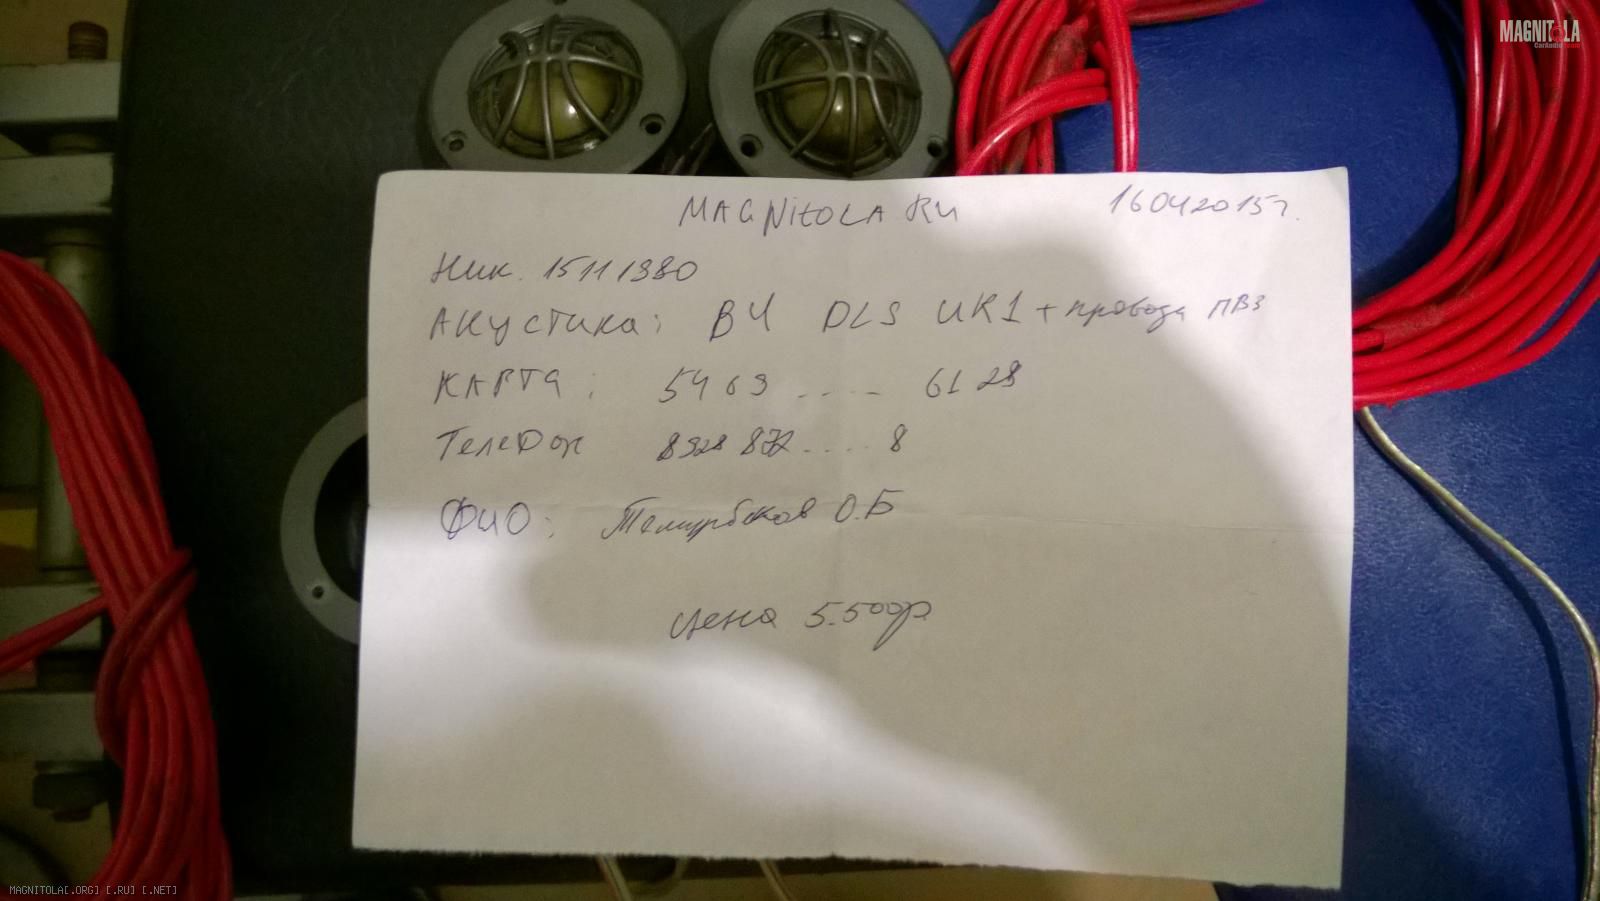 MAGNITOLA
CarAudio
MAGNITOLA RU 16042015г.
Ник. 15111980
Акустика: ВЧ DLS UR1 + провода ПВ3
КАРТА: 5469 .... 6128
Телефон 8928 872 .... 8
ФИО: Темирбеков О.Б
цена 5.500р
MAGNITOLA[.ORG] [.RU] [.NET]